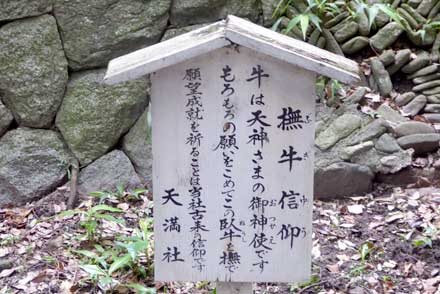 撫牛信仰
牛は天神さまの御神使です
もろもろの願いをこめてこの臥牛を撫で
願望成就を祈ることは当社古来の信仰です
天満社